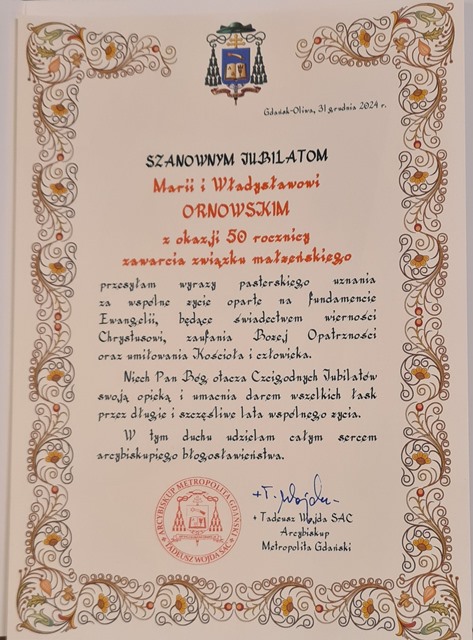 Gdańsk-Oliwa, 31 grudnia 2024 r.
SZANOWNYM JUBILATOM
Marii i Władysławowi
ORNOWSKIM
z okazji 50 rocznicy
zawarcia związku małżeńskiego
przesyłam wyrazy pasterskiego uznania
za wspólne życie oparte na fundamencie
Ewangelii, będące świadectwem wierności
Chrystusowi, zaufania Bożej Opatrzności
oraz umiłowania Kościoła i człowieka.
Niech Pan Bóg otacza Czcigodnych Jubilatów
swoją opieką i umacnia darem wszelkich łask
przez długie i szczęśliwe lata wspólnego życia.
W tym duchu udzielam całym sercem
arcybiskupiego błogosławieństwa.
ARCYBISKUP METROPOLITA GDAŃSKI
TADEUSZ WOJDA SAC
+T. Wojda
+ Tadeusz Wojda SAC
Arcybiskup
Metropolita Gdański